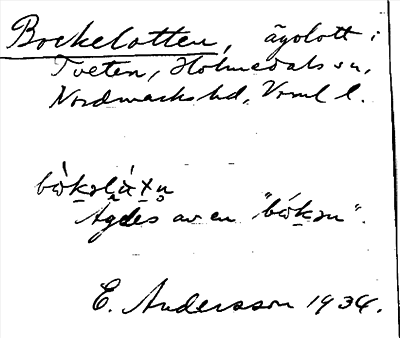 Bockelotten, ägolott i
Tveten, Holmedals sn,
Nordmarks hd, Vrml l.
Ägdes av en "bωkən".
E. Andersson 1934.